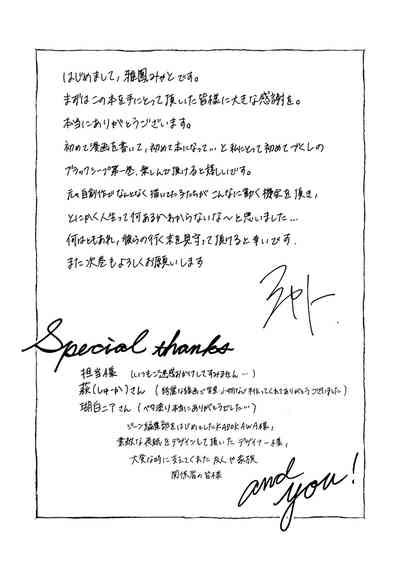 はじめまして、雅鳳みかとです。
まずはこの本を手にとって頂いた皆様に大きな感謝を。
本当にありがとうございます。
初めて漫画を書いて、初めて本になって…と私にとって初めてづくしの
ブラックシープ第一巻、楽しんで頂けると嬉しいです。
元々自創作がなんとなく描いてた子たちがこんなに動く機会を頂き、
とにかく人生って何あるかわからないな〜と思いました…
何はともあれ、彼らの行く末を見守って頂けると幸いです。
また次巻もよろしくお願いします
Special thanks
担当様 (いつもご迷惑おかけしてすみません…)
萩(しゅか)さん (綺麗な絵画や背景、小物など手伝ってくれてありがとうございました)
瑚白ニアさん (ベタ塗り本当にありがとうでした…)
ジーン編集部をはじめとしたKADOKAWA様、
素敵な表紙をデザインして頂いたデザイナー様、
大変な時に支えてくれた友人や家族
関係者の皆様
and
you!